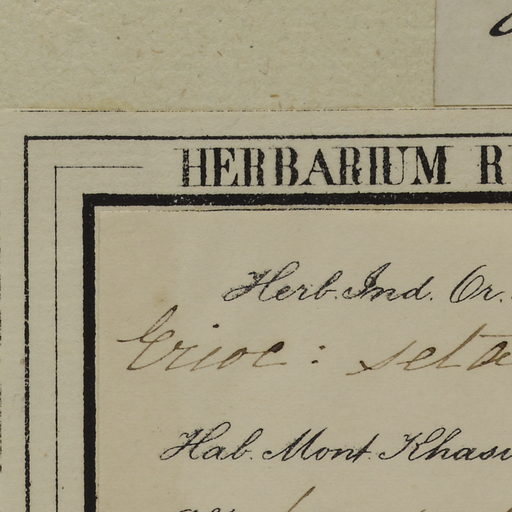 HERBARIUM R
Herb. Ind. Or.
Erioc: seta
Hab. Mont. Khasi